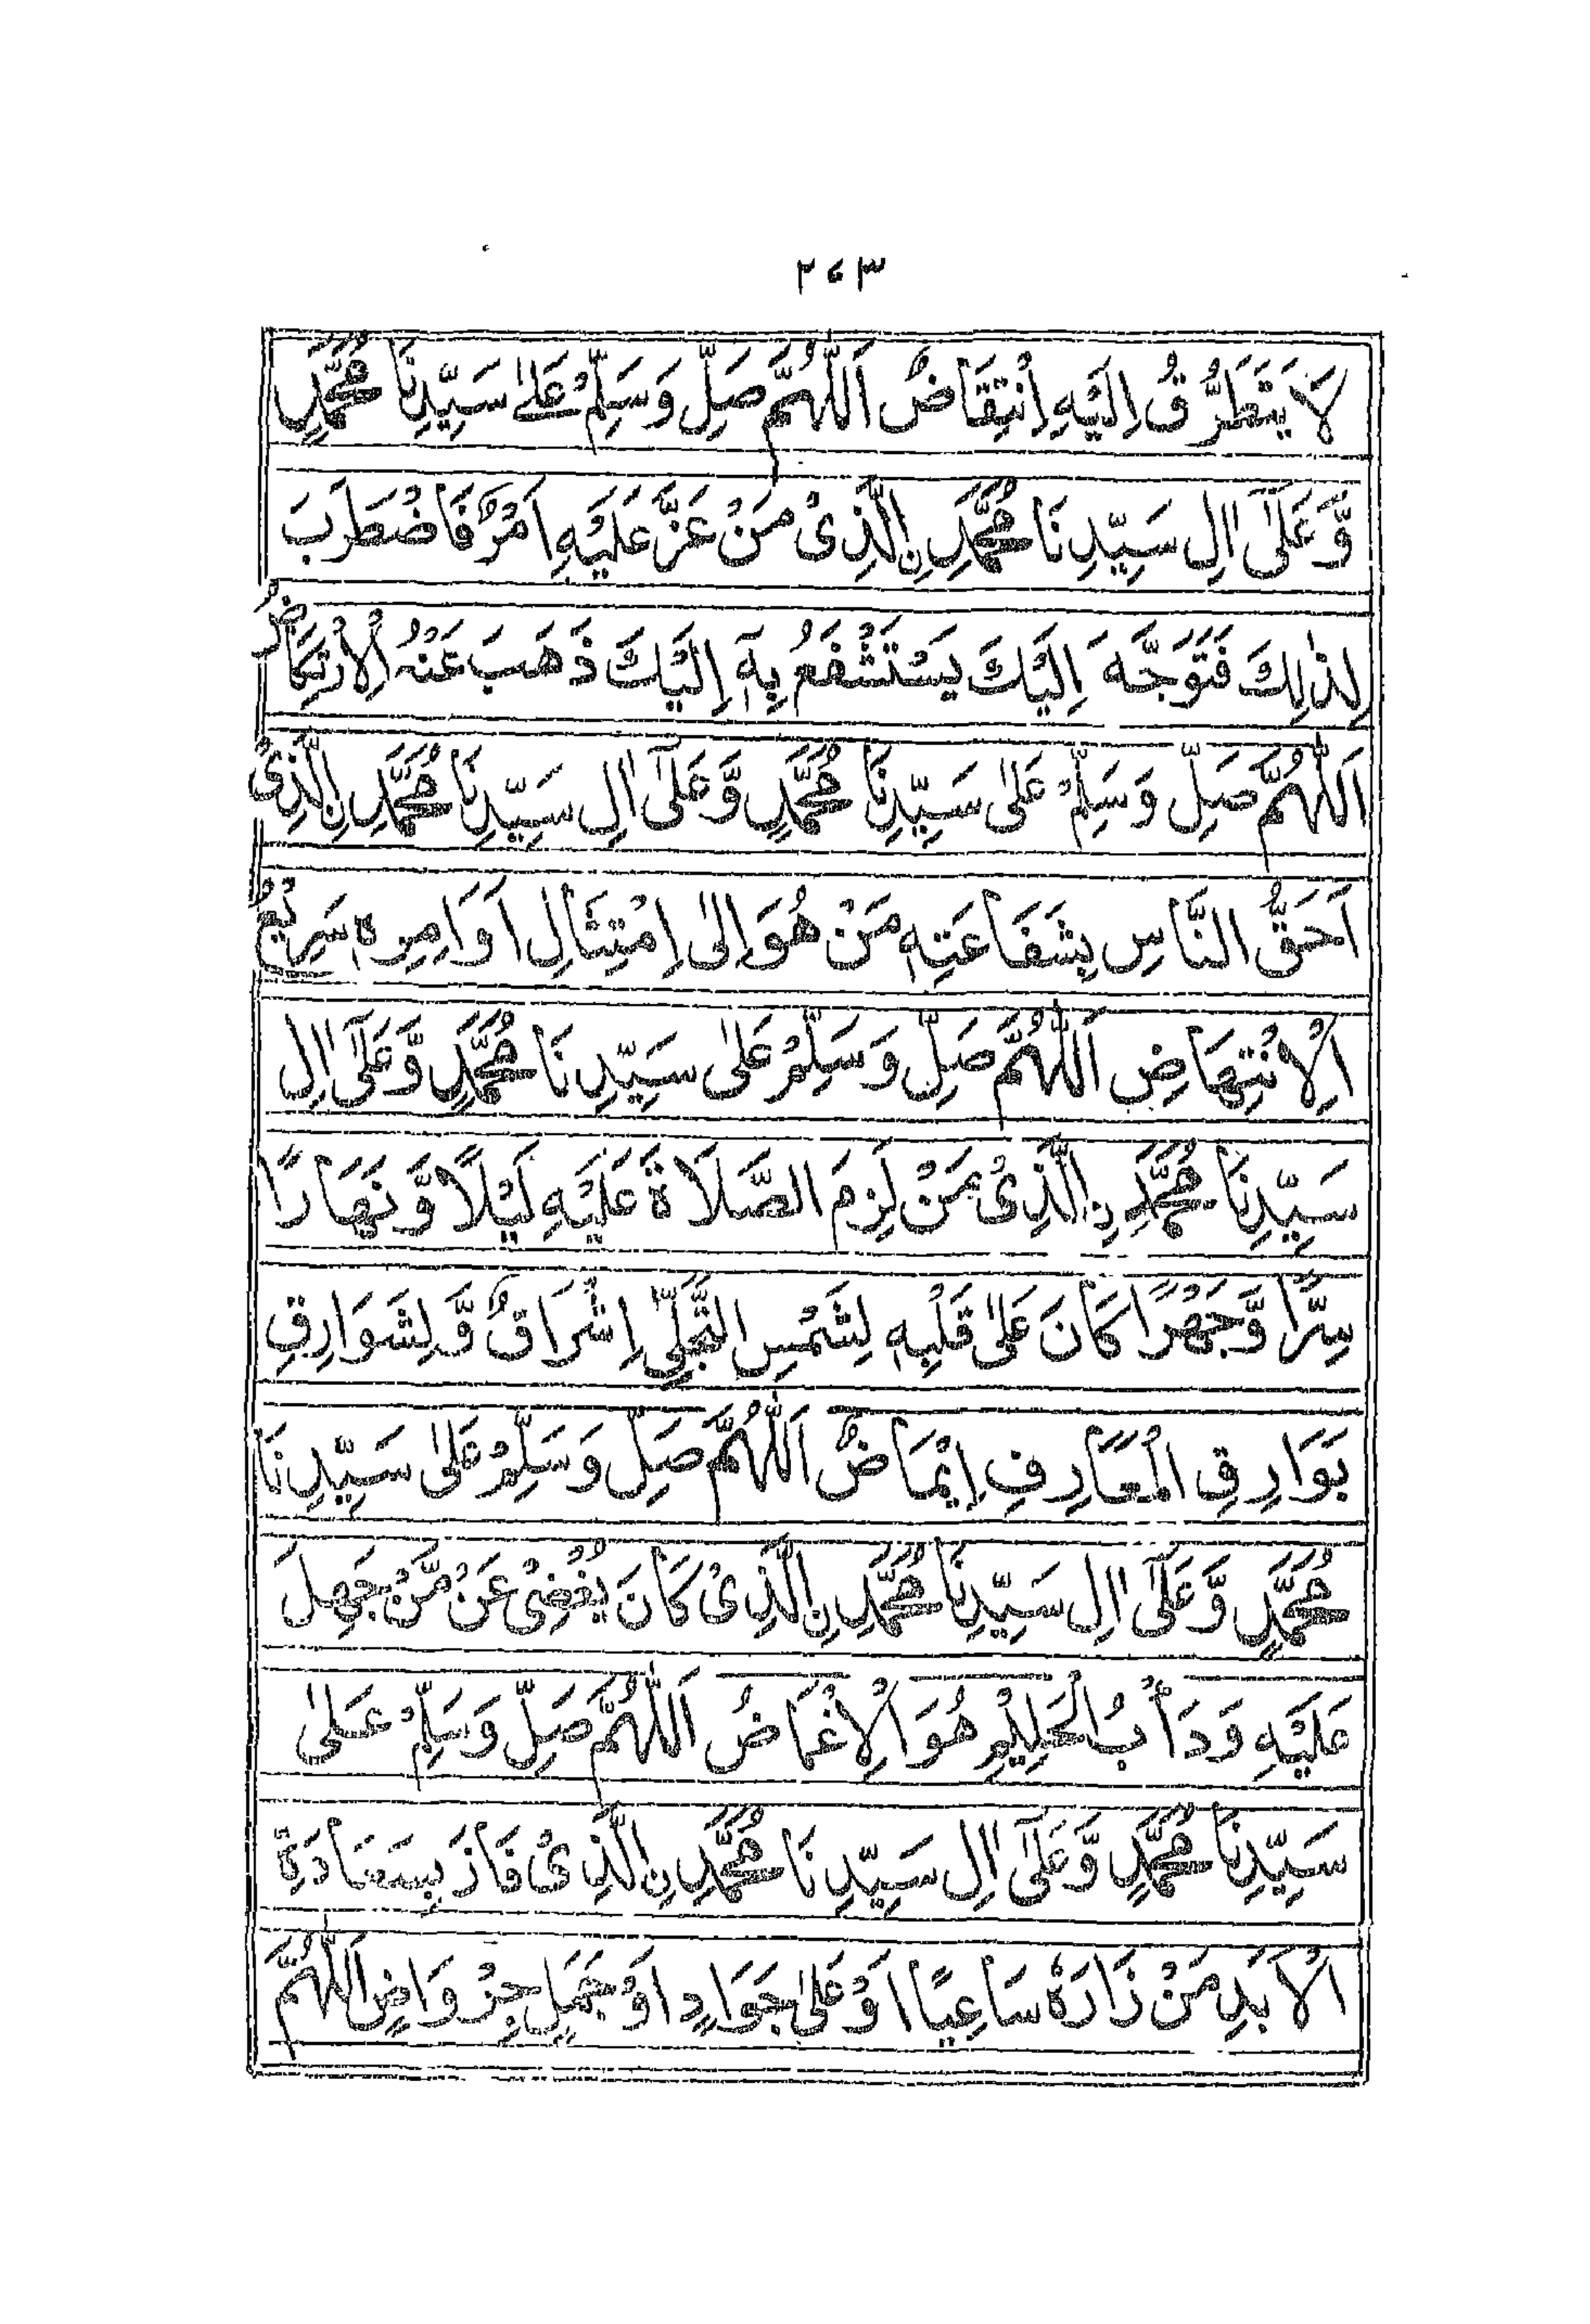 ٢٤٣
لَا يَتَطَرَّقُ اِلَيْهِ اِنْتِقَاضٌ اَللّٰهُمَّ صَلِّ وَسَلِّمْ عَلٰى سَيِّدِنَا مُحَمَّدٍ
وَّعَلٰٓى اٰلِ سَيِّدِنَا مُحَمَّدِ نِ الَّذِىْ مَنْ عَزَّ عَلَيْهِ اَمْرٌ فَاضْطَرَبَ
لِذٰلِكَ فَتَوَجَّهَ اِلَيْكَ يَسْتَشْفَعُ بِهٖٓ اِلَيْكَ ذَهَبَ عَنْهُ الْاِرْتِكَاضُ
اَللّٰهُمَّ صَلِّ وَسَلِّمْ عَلٰى سَيِّدِنَا مُحَمَّدٍ وَّعَلٰٓى اٰلِ سَيِّدِنَا مُحَمَّدِ نِ الَّذِىْ
اَحَقُّ النَّاسِ بِشَفَاعَتِهٖ مَنْ هُوَ اِلٰى اِمْتِثَالِ اَوَامِرِهٖ سَرِيْعُ
الْاِنْتِهَاضِ اَللّٰهُمَّ صَلِّ وَسَلِّمْ عَلٰى سَيِّدِنَا مُحَمَّدٍ وَّعَلٰٓى اٰلِ
سَيِّدِنَا مُحَمَّدِ نِ الَّذِىْ مَنْ لَزِمَ الصَّلَاةَ عَلَيْهِ لَيْلًا وَّنَهَارًا
سِرًّا وَّجَهْرًا كَانَ عَلٰى قَلْبِهٖ لِشَمْسِ التَّجَلِّىْ اِشْرَاقٌ وَّلِشَوَارِقِ
بَوَارِقِ الْمَعَارِفِ اِيْمَاضٌ اَللّٰهُمَّ صَلِّ وَسَلِّمْ عَلٰى سَيِّدِنَا
مُحَمَّدٍ وَّعَلٰٓى اٰلِ سَيِّدِنَا مُحَمَّدِ نِ الَّذِىْ كَانَ يُغْضِىْ عَنْ مَّنْ جَهِلَ
عَلَيْهِ وَدَأْبُ الْحَلِيْمِ هُوَ الْاِغْمَاضُ اَللّٰهُمَّ صَلِّ وَسَلِّمْ عَلٰى
سَيِّدِنَا مُحَمَّدٍ وَّعَلٰٓى اٰلِ سَيِّدِنَا مُحَمَّدِ نِ الَّذِىْ فَازَ بِسَعَادَةِ
الْاَبَدِ مَنْ زَارَهٗ سَاعِيًا اَوْ عَلٰى جَوَادٍ اَوْ جَمَلٍ جِرْوَاضٍ اَللّٰهُمَّ